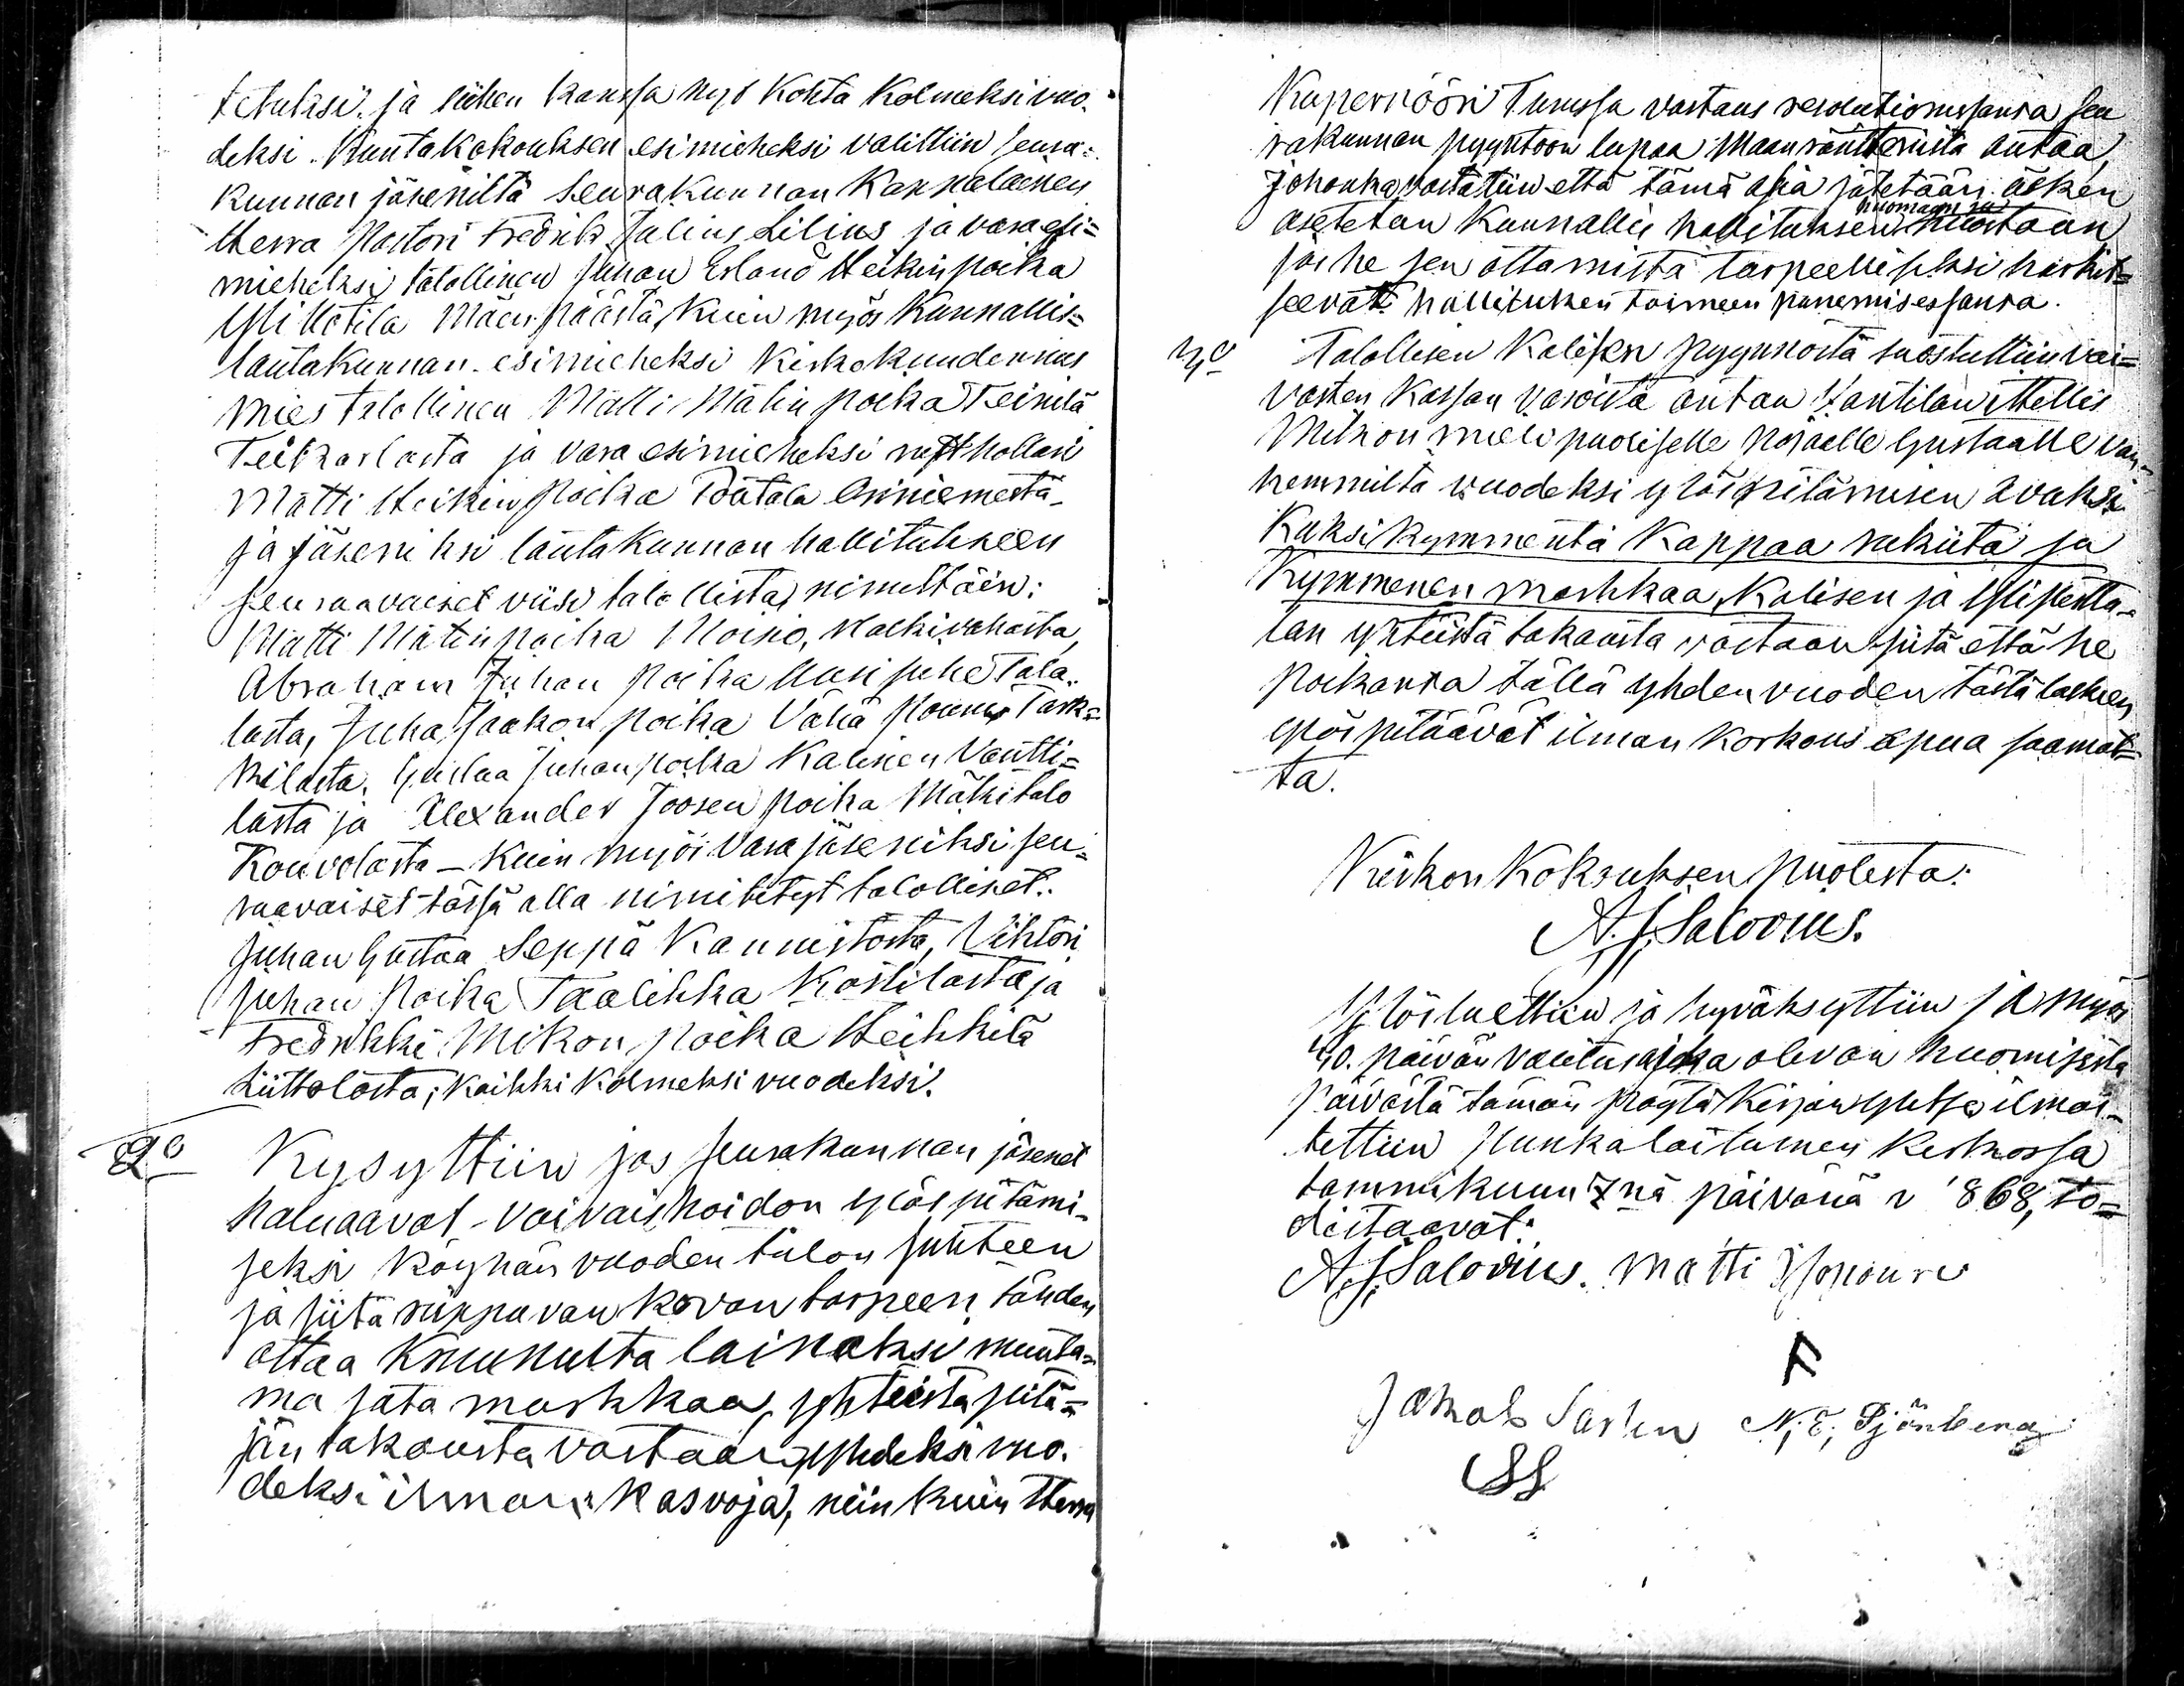 tetuksi. ja siihen kanssa nyt kohta kolmeksi vuo-
deksi. Kuntakokouksen esimieheksi valittiin seura=
kunnan jäseniltä Seurakunnan Kappalainen
Herra Pastori Fredrik Julius Lilius ja vara esi=
mieheksi talollinen Juhan Erland Heikinpoika
Yli Kotila Mäenpäästä, kuin myös Kunnallis=
lautakunnan esimieheksi kirkokuudennus
mies talollinen Matti Matin poika Teinilä
Teikarlasta ja vara esimieheksi rusthollari
Matti Heikin poika Töötälä Orniemestä
ja jäseniksi lautakunnan hallitukseen
seuraavaiset viisi talollista, nimittäin:
Matti Matinpoika Moisio, Kalkivahasta,
Abraham Juhan poika Uusi suhe Tala-
lasta, Juha Jaakon poika Vähä Pounu Tark=
kilasta, Gustaa Juhanpoika Kalisen Vantti=
lasta ja Alexander Joosen poika Mäkitalo
Kouvolasta – kuin myös varajäseniksi seu-
raavaiset tässä alla nimitetyt talolliset:
Juhan Gustaa Seppä Kannistosta, Vihtori
Juhan Poika Taalikka Kostilasta ja
Fredrikki Mikon poika Heikkilä
Liuttolasta; kaikki kolmeksi vuodeksi.
2o Kysyttiin jos seurakunnan jäsenet
haluaavat vaivaishoidon ylöspitämi-
seksi köyhän vuoden tulon suhteen
ja siitä riippuvan kovan tarpeen tähden
ottaa kruunulta lainaksi muuta-
ma sata markkaa, yhteistä pitä=
jän takausta vastaan yhdeksi vuo-
deksi ilman kasvoja, niin kuin Herra
Kupernööri Turussa vastaus resolutionissansa seu
rakunnan pyyntöön lupaa Maaränttteriista antaa,
Johonka vastatiin että tämä asia jätetään äsken
huomaan ja
asetetan Kunnallis hallituksen huostaan
jos he sen ottamista tarpeelliseksi harkit=
seevat hallituksen toimeen panemisessansa.
3o Talollisen Kalisen pyynnöstä suostuttiin vai=
vasten kassan varoista antaa Vantilan Ittellis
Mikon mielipuoliselle pojaelle Gustaalle van-
hemmilta vuodeksi ylöspitämisen avaksi
Kaksikymmentä kappaa rukiita ja
Kymmenen markkaa, Kalisen ja Ylipenta-
lan yhteistä takausta vastaan siitä että he
poikansa tällä yhden vuoden tästä lukien
ylöspitäävät ilman korkous apua saamat=
ta.
Kiskon Kokouksen puolesta:
A. J. Salovius.
Ylösluettiin ja hyväksyttiin ja myös
40. päivän valitusajka olevan huomisesta
päivästä tämän pöytäkirjan yhtsä ilmoi-
tettiin Kunkalaitumen Kiskossa
tammikuun 7nä päivänä v 1868, to=
distaavat:
A. J. Salovius. Matti Isopounu
Jakob Sarlin N. E. Sjönberg